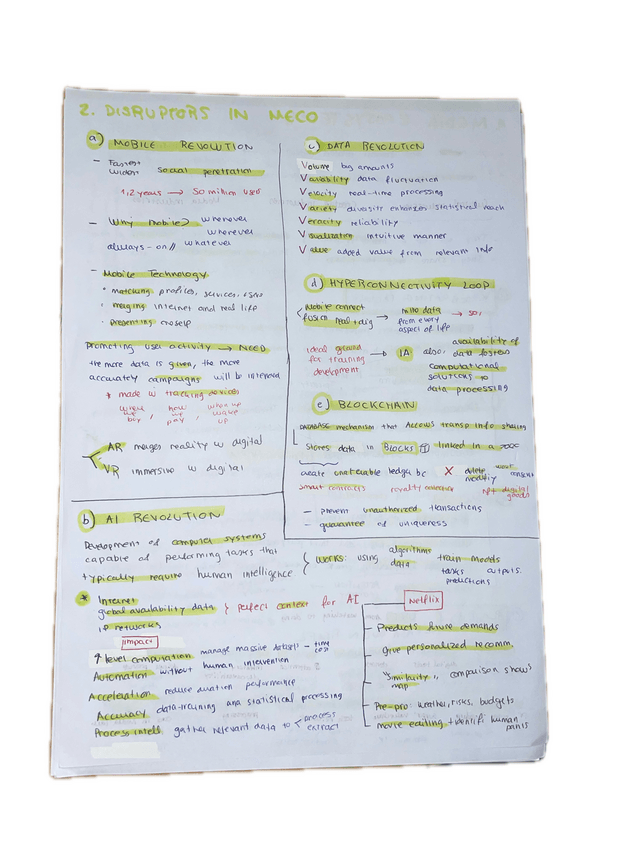 2. DISRUPTORS IN MECO
a) MOBILE REVOLUTION
- Faster
wider social penetration
1,2 years → 50 million users
- Why mobile? whenever
wherever
always-on // whatever
- Mobile Technology
· matching: profiles, services, users
· merging internet and real life
· presenting oneself
Promoting user activity → NEED
the more data is given, the more
accurately campaigns will be
* made w tracking devices
where how when
we buy, we pay, wake up
AR merges reality w digital
VR immersive w digital
c) DATA REVOLUTION
Volume big amounts
Variability data fluctuation
Velocity real-time processing
Variety diversity enhances statistical reach
Veracity reliability
Visualization intuitive manner
Value added value from relevant info
d) HYPERCONNECTIVITY LOOP
Mobile connect → data → so,
fusion real + dig from every
aspect of life
ideal ground → IA also, availability of
for training data fosters
development computational
solutions to
data processing
e) BLOCKCHAIN
DATABASE mechanism that allows transp info sharing
stores data in BLOCKS linked in a
create unalterable ledger bc X delete
modify consent
smart contracts royalty nft digital
goods
- prevent unauthorized transactions
- guarantee of uniqueness
b) AI REVOLUTION
Development of computer systems
capable of performing tasks that
typically require human intelligence
works: using algorithms train models
data tasks outputs.
predictions
* Internet
global availability data } perfect context for AI
IP networks
Impact
↑ level computation manage massive datasets - time
cost
Automation without human intervention
Acceleration reduce duration performance
Accuracy data-training and statistical processing
Process intell gather relevant data to < process
extract
Netflix
- Predicts future demands
- give personalized recomm.
- "Similarity map" comparison shows
- Pre-pro weather, risks, budgets
- movie editing + identifi human